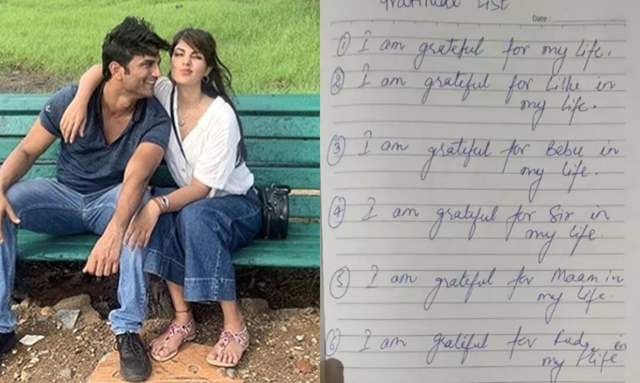 Gratitude List
Date :
① I am grateful for my life.
② I am grateful for Lillu in
my life.
③ I am grateful for Bebu in
my life.
④ I am grateful for Sir in
my life.
⑤ I am grateful for Maam in
my life
⑥ I am grateful for Fudge in
my life